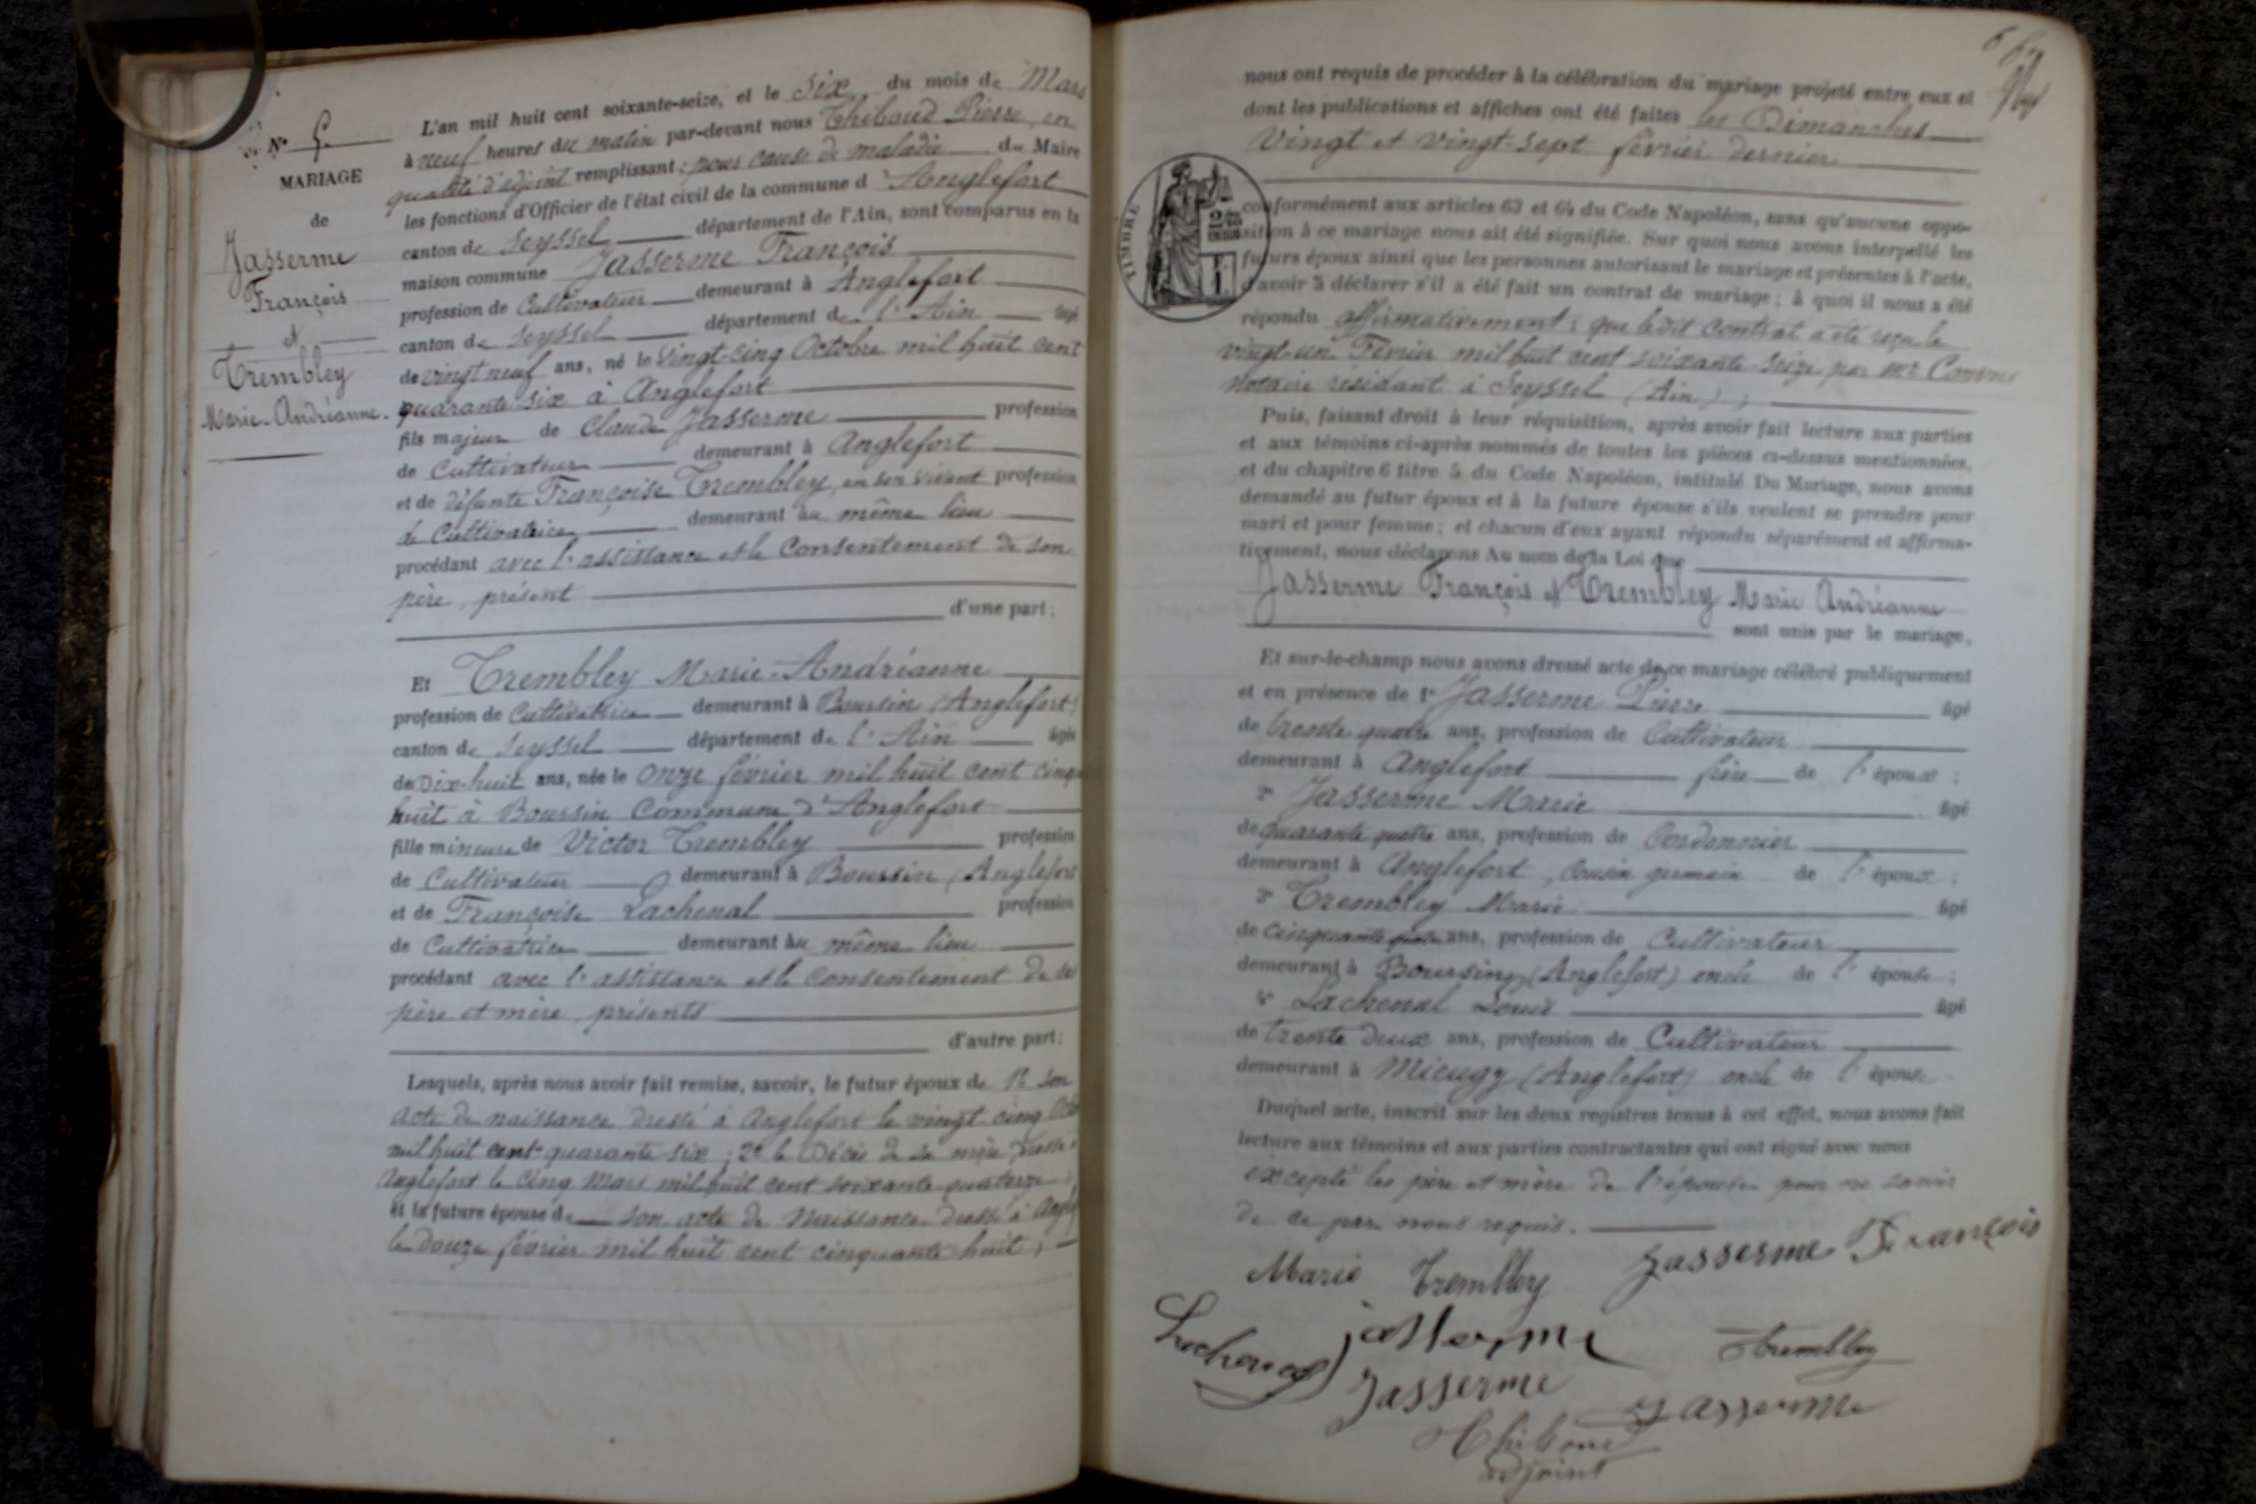 N° 5.
MARIAGE
de
Jasserme
François
et
Trembley
Marie-Andréanne.
L'an mil huit cent soixante-seize, et le six du mois de Mars
à neuf heures du matin par-devant nous Thibaud Pierre, en
qualité d'adjoint remplissant : pour cause de maladie du Maire
les fonctions d'Officier de l'état civil de la commune d'Anglefort
canton de Seyssel département de l'Ain, sont comparus en la
maison commune Jasserme François
profession de Cultivateur demeurant à Anglefort
canton de Seyssel département de l'Ain âgé
de vingt neuf ans, né le vingt-cinq Octobre mil huit cent
quarante-six à Anglefort
fils majeur de Claude Jasserme profession
de Cultivateur demeurant à Anglefort
et de défunte Françoise Trembley, en son vivant profession
de Cultivatrice demeurant au même lieu
procédant avec l'assistance et le consentement de son
père, présent
d'une part;
Et Trembley Marie-Andréanne
profession de Cultivatrice demeurant à Boursin (Anglefort)
canton de Seyssel département de l'Ain âgée
de Dix-huit ans, née le onze février mil huit cent cinq
huit à Boursin Commune d'Anglefort
fille mineure de Victor Trembley profession
de Cultivateur demeurant à Boursin (Anglefort
et de Françoise Lachenal profession
de Cultivatrice demeurant au même lieu
procédant avec l'assistance et le consentement de ses
père et mère, présents
d'autre part;
Lesquels, après nous avoir fait remise, savoir, le futur époux de 1° son
acte de naissance dressé à Anglefort le vingt-cinq Octo
mil huit cent quarante-six ; 2° le Décès de sa mère dressé à
Anglefort le cinq Mars mil huit cent soixante-quatorze ;
et la future épouse de son acte de Naissance dressé à Anglef
le douze février mil huit cent cinquante-huit ;
nous ont requis de procéder à la célébration du mariage projeté entre eux et
dont les publications et affiches ont été faites les Dimanches
vingt et vingt-sept février dernier.
TIMBRE
conformément aux articles 63 et 64 du Code Napoléon, sans qu'aucune oppo-
sition à ce mariage nous ait été signifiée. Sur quoi nous avons interpellé les
futurs époux ainsi que les personnes autorisant le mariage et présentes à l'acte,
d'avoir à déclarer s'il a été fait un contrat de mariage ; à quoi il nous a été
répondu affirmativement ; que ledit contrat a été reçu le
vingt-un Février mil huit cent soixante-seize, par Me
notaire résidant à Seyssel (Ain) ;
Puis, faisant droit à leur réquisition, après avoir fait lecture aux parties
et aux témoins ci-après nommés de toutes les pièces ci-dessus mentionnées,
et du chapitre 6 titre 5 du Code Napoléon, intitulé Du Mariage, nous avons
demandé au futur époux et à la future épouse s'ils veulent se prendre pour
mari et pour femme ; et chacun d'eux ayant répondu séparément et affirma-
tivement, nous déclarons Au nom de la Loi que
Jasserme François et Trembley Marie Andréanne
sont unis par le mariage.
Et sur-le-champ nous avons dressé acte de ce mariage célébré publiquement
et en présence de 1° Jasserme Pierre âgé
de trente quatre ans, profession de Cultivateur
demeurant à Anglefort frère de l'époux ;
2° Jasserme Marie âgé
de quarante quatre ans, profession de Cordonnier
demeurant à Anglefort, cousin germain de l'époux ;
3° Trembley Marie âgé
de cinquante quatre ans, profession de Cultivateur
demeurant à Boursin (Anglefort) oncle de l'épouse ;
4° Lachenal Louis âgé
de trente deux ans, profession de Cultivateur
demeurant à Mieugy (Anglefort) oncle de l'épouse
Duquel acte, inscrit sur les deux registres tenus à cet effet, nous avons fait
lecture aux témoins et aux parties contractantes qui ont signé avec nous
excepté les père et mère de l'épouse pour ne savoir
de ce par nous requis.
Marie Trembley Jasserme François
Lachenal jasserme Trembley
Jasserme Jasserme
Thibaud
adjoint